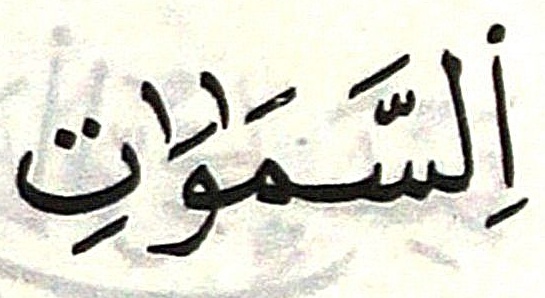 اِلسَّمَٰوَٰتِ